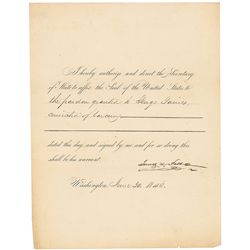 I hereby authorize and direct the Secretary
of State to affix the Seal of the United States to
the pardon granted to
convicted of larceny
dated this day and signed by me and for so doing this
shall be his warrant.
Washington, June 20, 1846.